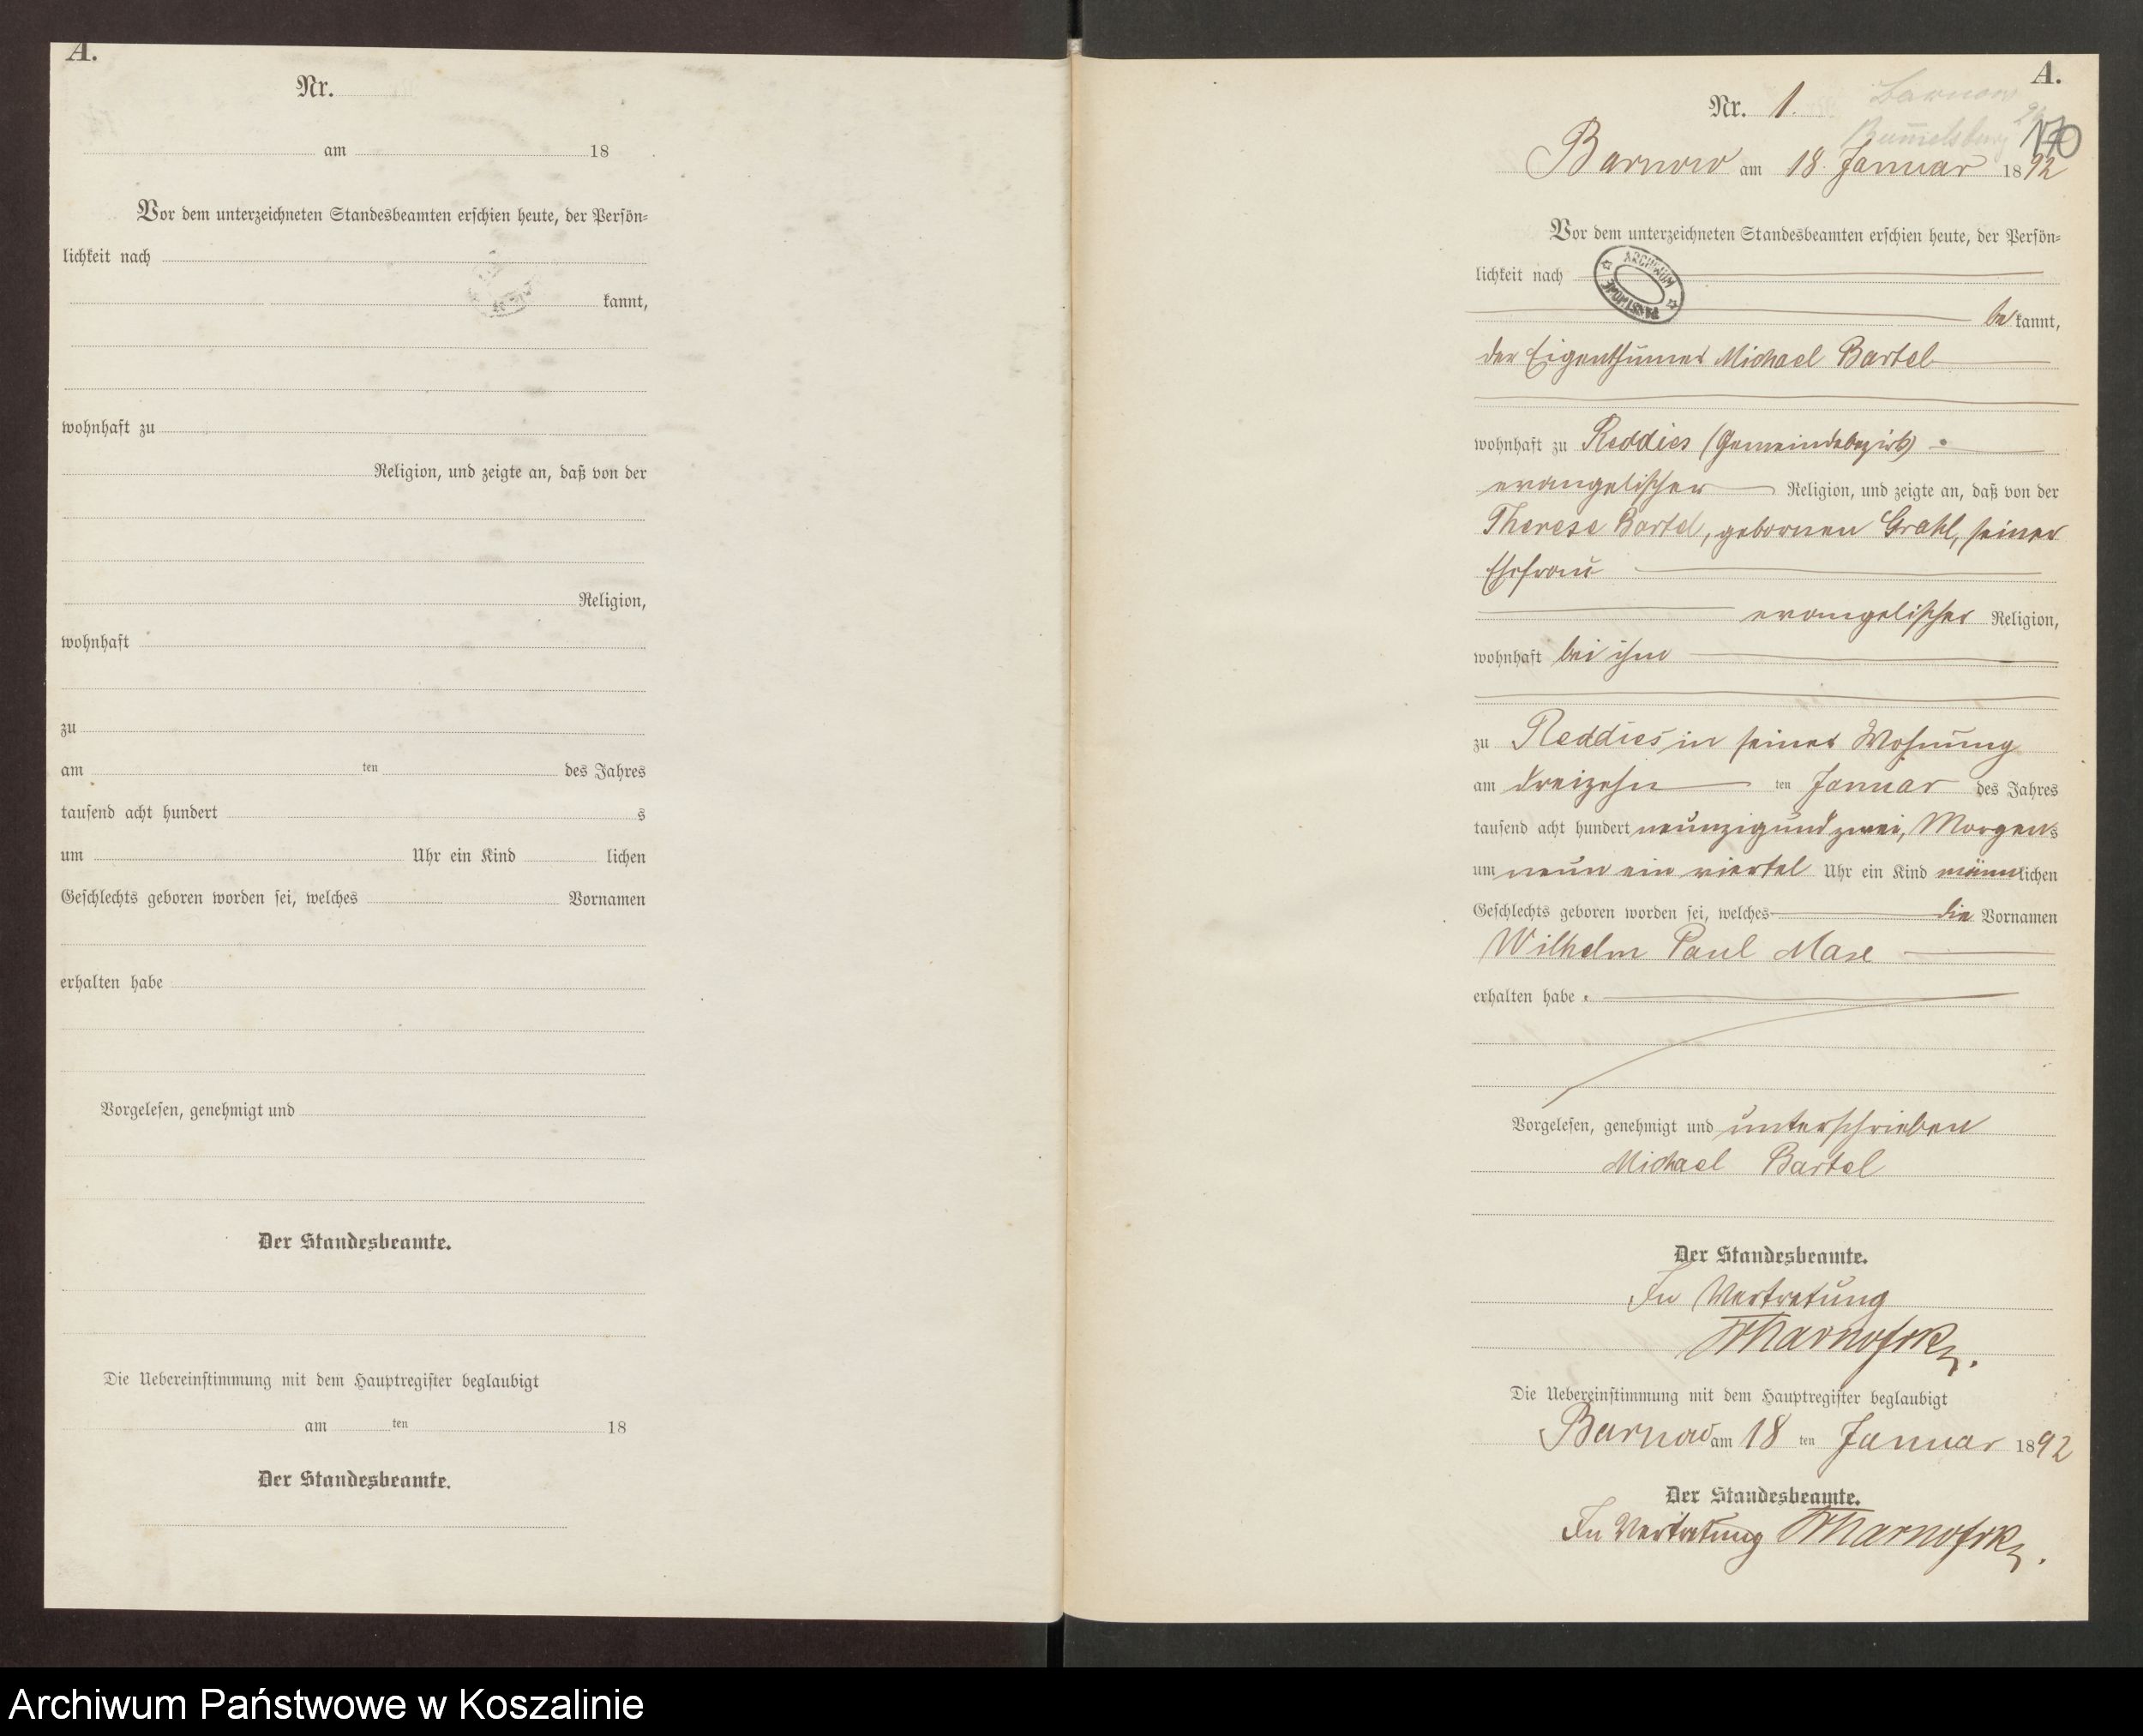 A.
Nr.
am 18
Vor dem unterzeichneten Standesbeamten erschien heute, der Persön=
lichkeit nach
kannt,
wohnhaft zu
Religion, und zeigte an, daß von der
Religion,
wohnhaft
zu
am ten des Jahres
tausend acht hundert s
um Uhr ein Kind lichen
Geschlechts geboren worden sei, welches Vornamen
erhalten habe
Vorgelesen, genehmigt und
Der Standesbeamte.
Die Uebereinstimmung mit dem Hauptregister beglaubigt
am ten 18
Der Standesbeamte.
A.
Barnow
Nr. 1.
Rummelsburg
170
Barnow am 18. Januar 1892
Vor dem unterzeichneten Standesbeamten erschien heute, der Persön=
lichkeit nach
ARCHIWUM PAŃSTWOWE
bekannt,
der Eigenthümer Michael Bartel
wohnhaft zu Reddies (Gemeindebezirk)
evangelischer Religion, und zeigte an, daß von der
Therese Bartel, gebornen Grahl, seiner
Ehefrau
evangelischer Religion,
wohnhaft bei ihm
zu Reddies in seiner Wohnung
am dreizehn ten Januar des Jahres
tausend acht hundert neunzig und zwei, Morgens
um neun ein viertel Uhr ein Kind männlichen
Geschlechts geboren worden sei, welches die Vornamen
Wilhelm Paul Max
erhalten habe.
Vorgelesen, genehmigt und unterschrieben
Michael Bartel
Der Standesbeamte.
In Vertretung
Die Uebereinstimmung mit dem Hauptregister beglaubigt
Barnow am 18 ten Januar 1892
Der Standesbeamte.
In Vertretung
Archiwum Państwowe w Koszalinie